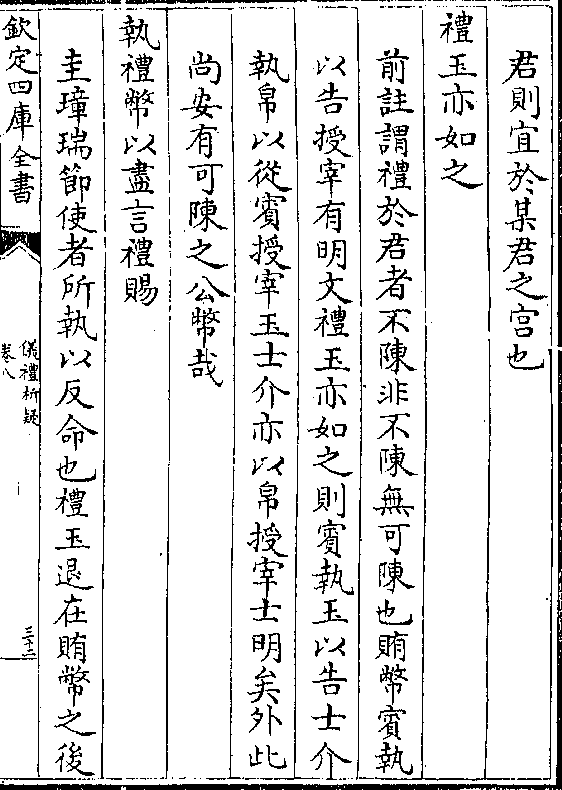 君則宜於某君之宫也
禮玉亦如之
前註謂禮於君者不陳非不陳無可陳也賄幣賓執
以告授宰有明文禮玉亦如之則賓執玉以告士介
執帛以從賓授宰玉士介亦以帛授宰士明矣外此
尚安有可陳之公幣哉
執禮幣以盡言禮賜
圭璋瑞節使者所執以反命也禮玉退在賄幣之後
欽定四庫全書
儀禮析疑
卷八
三十二